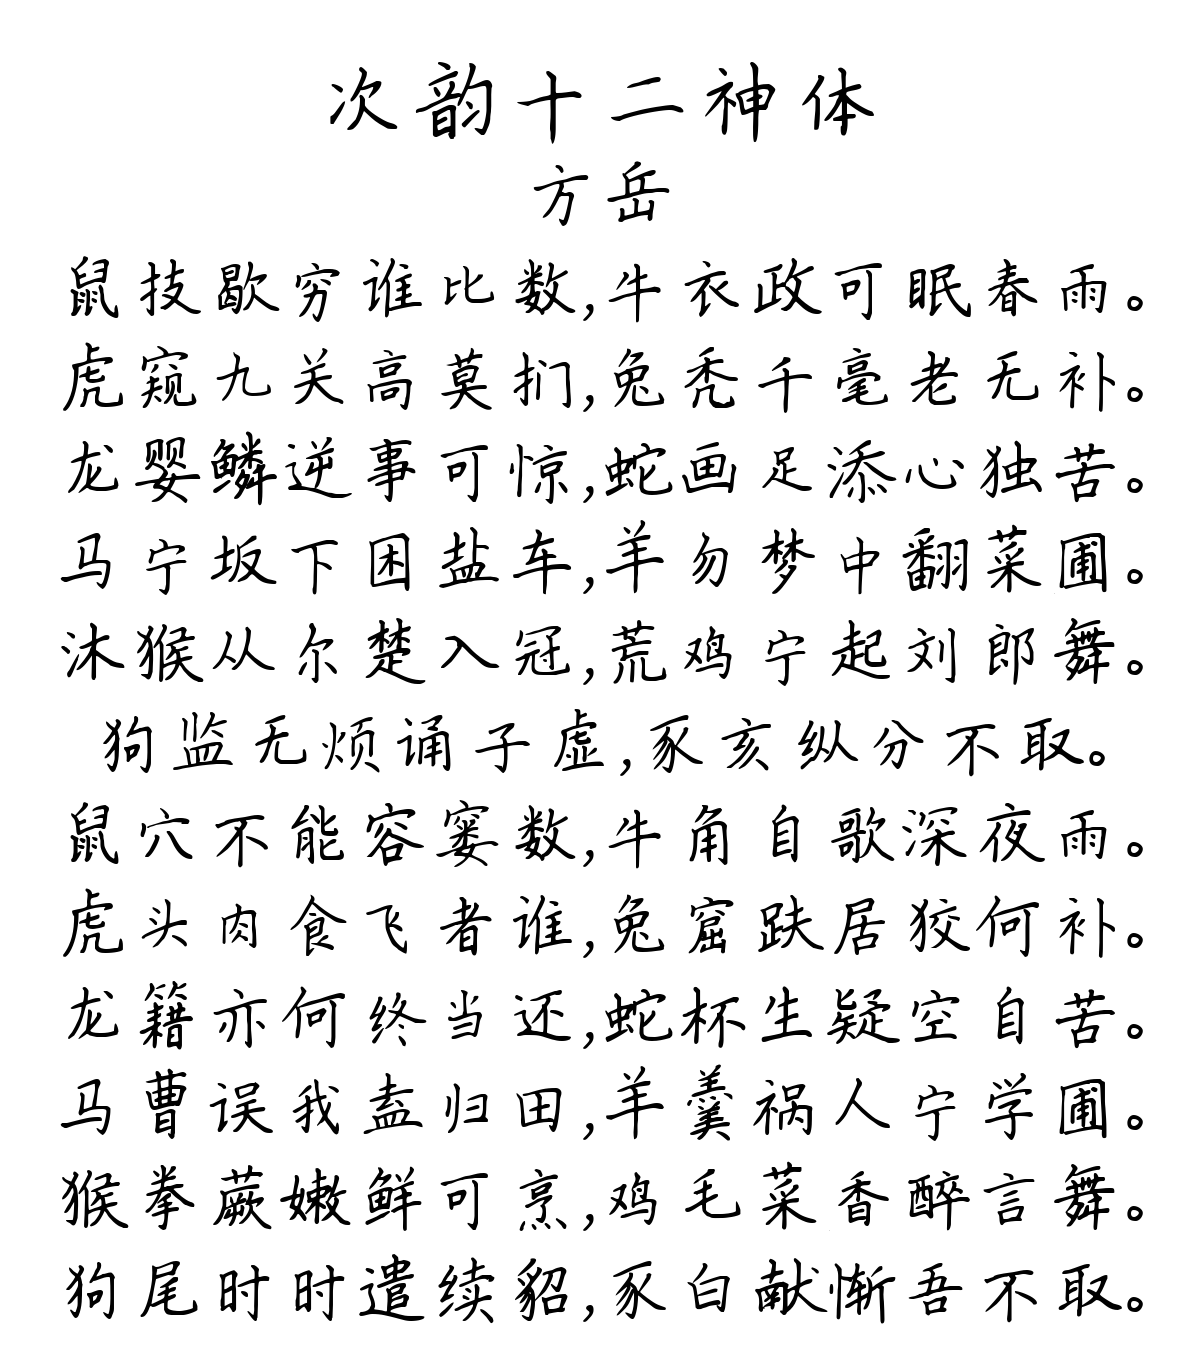 次韵十二神体
方岳
鼠技歇穷谁比数,牛衣政可眠春雨。
虎窥九关高莫扪,兔秃千毫老无补。
龙婴鳞逆事可惊,蛇画足添心独苦。
马宁坂下困盐车,羊勿梦中翻菜圃。
沐猴从尔楚入冠,荒鸡宁起刘郎舞。
狗监无烦诵子虚,豕亥纵分不取。
鼠穴不能容窭数,牛角自歌深夜雨。
虎头肉食飞者谁,兔窟趺居狡何补。
龙籍亦何终当还,蛇杯生疑空自苦。
马曹误我盍归田,羊羹祸人宁学圃。
猴拳蕨嫩鲜可烹,鸡毛菜香醉言舞。
狗尾时时遣续貂,豕白献惭吾不取。